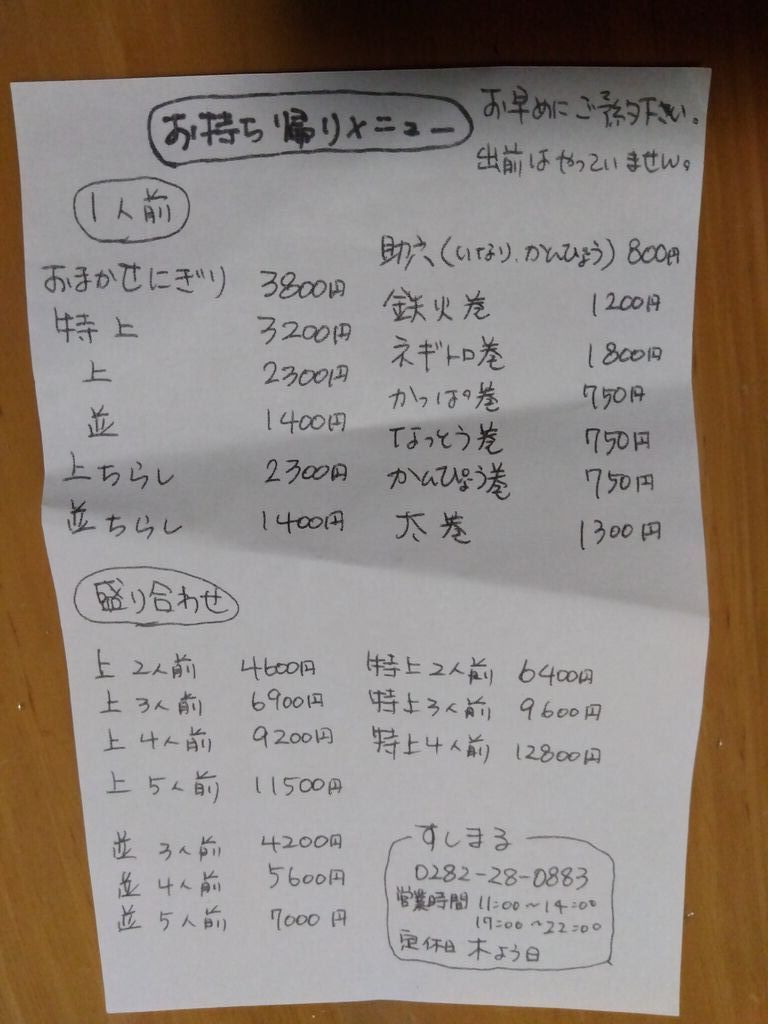 お持ち帰りメニュー
お早めにご予約下さい。
出前はやっていません。
1人前
おまかせにぎり 3800円
特上 3200円
上 2300円
並 1400円
上ちらし 2300円
並ちらし 1400円
助六(いなり、かんぴょう) 800円
鉄火巻 1200円
ネギトロ巻 1800円
かっぱ巻 750円
なっとう巻 750円
かんぴょう巻 750円
太巻 1300円
盛り合わせ
上 2人前 4600円
上 3人前 6900円
上 4人前 9200円
上 5人前 11500円
特上2人前 6400円
特上3人前 9600円
特上4人前 12800円
並 3人前 4200円
並 4人前 5600円
並 5人前 7000円
すしまる
0282-28-0883
営業時間 11:00~14:00
17:00~22:00
定休日 木よう日